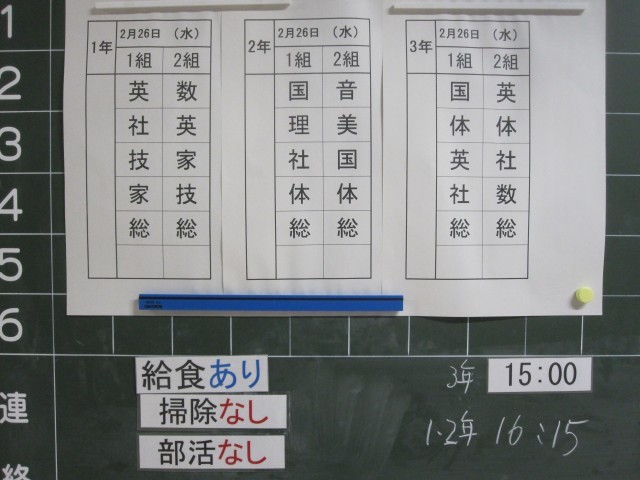 1
2
3
4
5
6
連
終
1年 2月26日 (水)
1組 2組
英 数
社 英
技 家
家 技
総 総
2年 2月26日 (水)
1組 2組
国 音
理 美
社 国
体 体
総 総
3年 2月26日 (水)
1組 2組
国 英
体 体
英 社
社 数
総 総
給食あり
掃除なし
部活なし
3年 15:00
1.2年 16:15